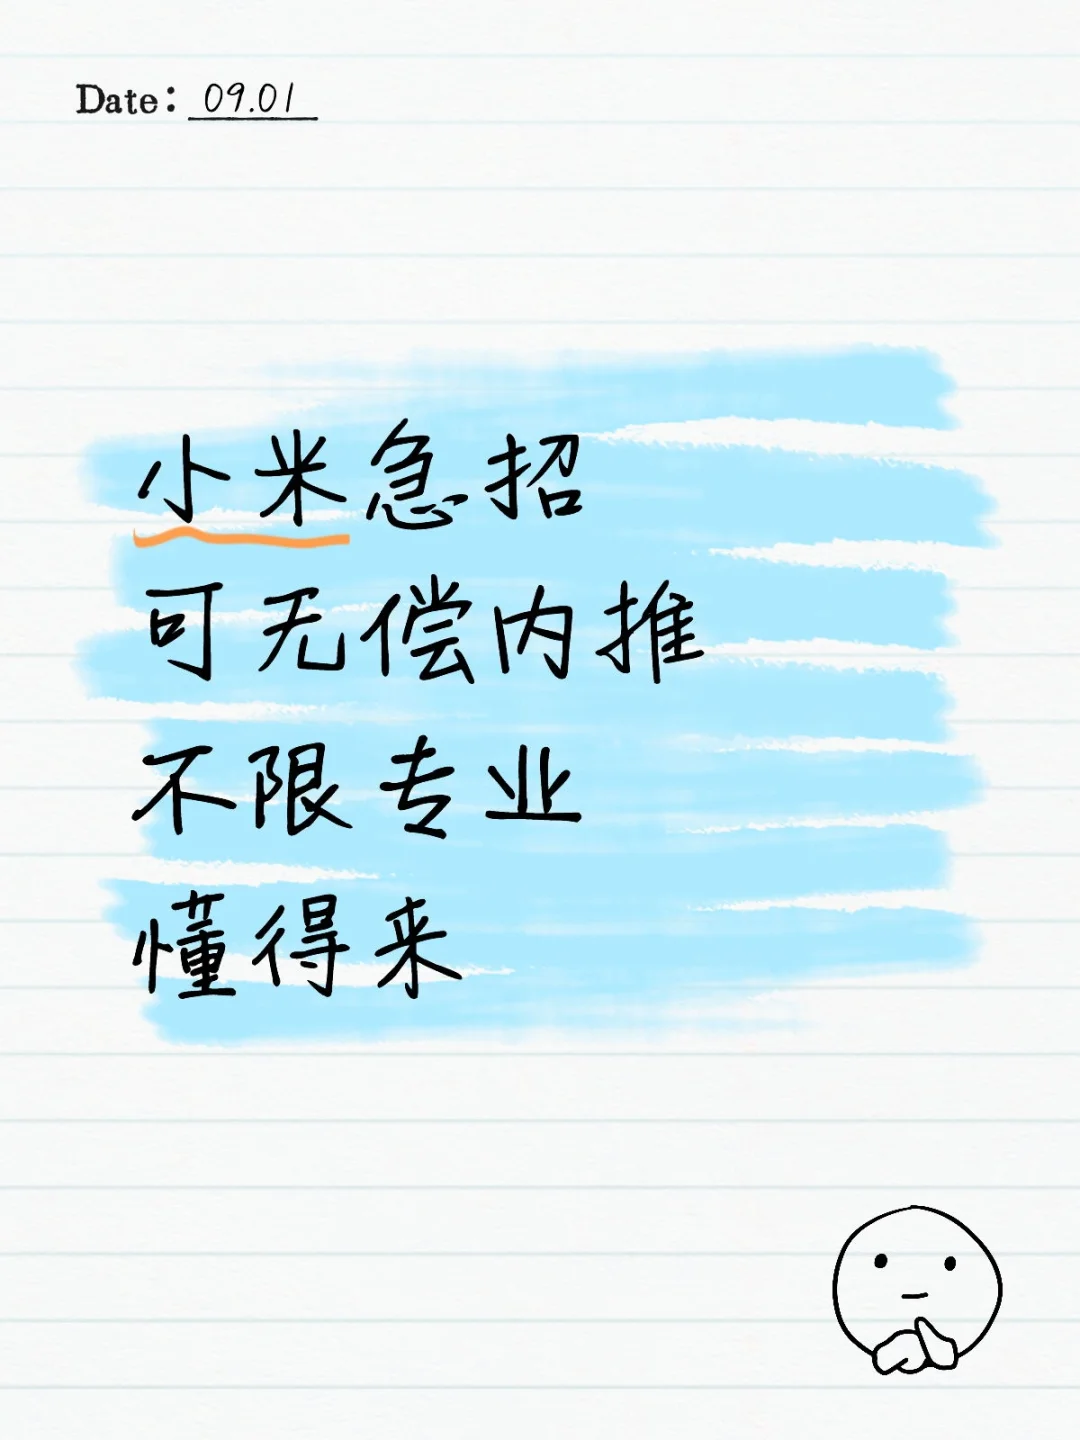 Date: 09.01
小米急招
可无偿内推
不限专业
懂得来